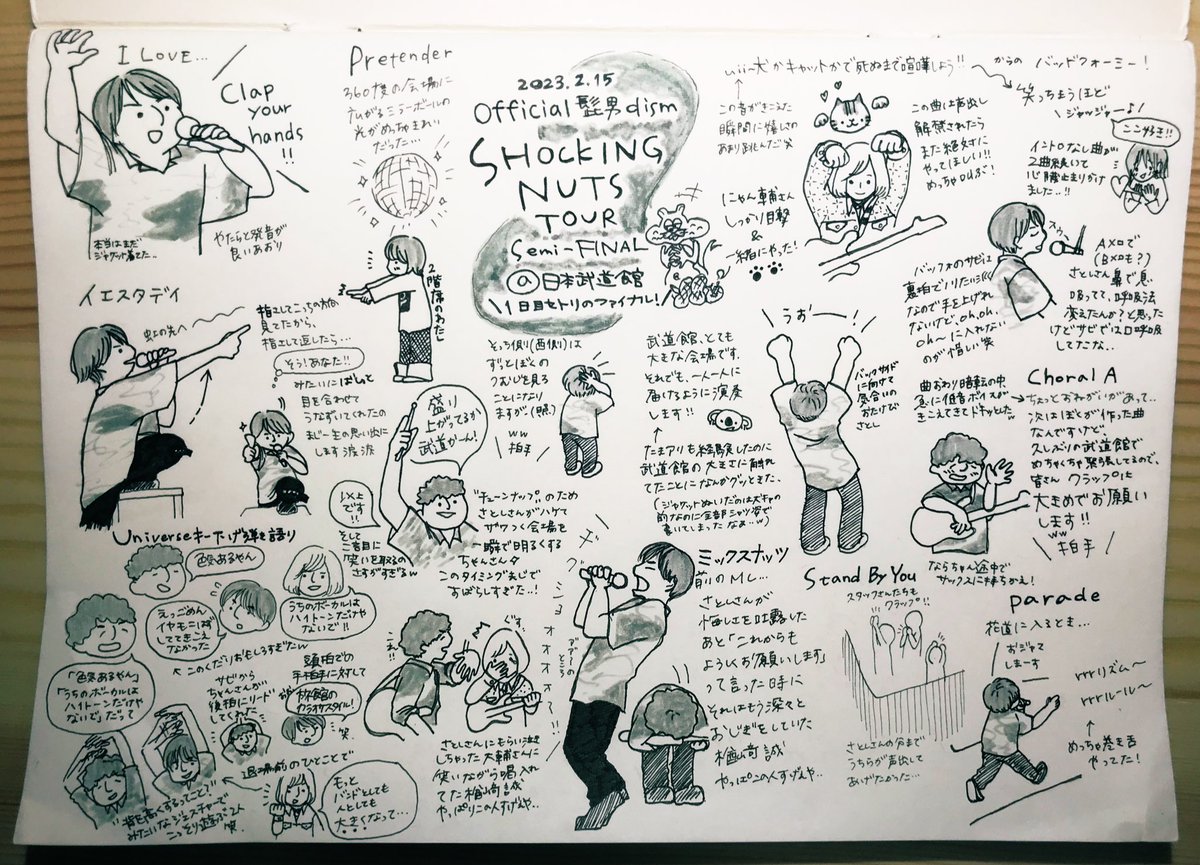 I LOVE...
Clap
your
hands
!!
本当はまだ
ジャケット着てた..
やたらと発音が
良いあおり
Pretender
360度の会場に
広がるミラーボールの
光がめちゃきれい
だった…
2023.2.15
Official髭男dism
SHOCKING
NUTS
TOUR
Semi-FINAL
@日本武道館
\1日目セトリのファイナル!/
wii~犬かキャットかで死ぬまで喧嘩しよう!!
からの バッドフォーミー!
この音がきこえた
瞬間に嬉しさの
あまり跳んだ笑
にゃん輔さん
しっかり目撃
&
一緒にやった!
この曲は声出し
解禁されたら
また絶対に
やってほしい!!
めっちゃ叫ぶ!
笑っちまうほど
\ジャッジャーン♪/
ここ好き!!
イントロなし曲が
2曲続いて
心臓止まりかけ
ました..!!
スゥ
Aメロで
(Bメロも?)
さとしさん鼻で息
吸ってて、呼吸法
変えたんか?と思った
けどサビでは口呼吸
してたな..
バッフォのサビは
裏拍でノりたい
なので手を上げれ
ないけど、oh,oh,
oh~に入れない
のが惜しい笑
イエスタデイ
虹の先へ
指さしてこっちの方向
見てたから、
指さして返したら…
そう!あなた!!
みたいにばしって
目を合わせて
うなずいてくれたの
まじ一生の思い出に
します 涙涙
2階席のわたし
そっち側り(西側)は
ずっとぼくの
つむじを見る
ことになり
ますが、(照)
ww
拍手
武道館、とても
大きな会場です。
それでも、一人一人に
届けるように演奏
します!!
たまアリも経験したのに
武道館の大きさに触れ
てたことになんかグッときた、
(ジャケットぬいだのは犬キャの
前なのに全部シャツ姿で
書いてしまったなぁ..w)
\うおー!/
バックサイド
に向けて
気合いの
おたけび
さとし
曲おわり暗転の中
急に低音ボイスが
きこえてきてドキッとした
Choral A
ちょっとおねがいがあって..
次はぼくが作った曲
なんですけど、
久しぶりの武道館で
めちゃくちゃ緊張してるので、
皆さん クラップは
大きめでお願い
します!!
ww
\拍手/
ならちゃん途中で
サックスに持ちかえ!
盛り
上がってるか
武道かーん!
以上
です!!
そして
ご着目に
笑いを取るの
さすがすぎるw
"チューンナップ"のため
さとしさんがハケて
ザワつく会場を
一瞬で明るくする
ちゃんさん
このタイミング含じで
すばらしすぎた..!
Universeキー下げ弾き語り
色気あるやん
えっごめん
イヤモニはず
しててきこえ
なかった
うちのボーカルは
ハイトーンだけや
ないで!!
↖このくだりおもしろすぎたw
「色気あるやん」
「うちのボーカルは
ハイトーンだけや
ないで」だって
サビから
ちゃんさんが
後拍にリード
してくれた
頭拍での
手拍子に対して
旅館の
カラオケスタイル!
笑
退場前のひとことで
もっと
バンドとしても
人としても
大きくなって…
背を高くするってこと?
みたいなジェスチャーで
こっそり遊ぶ2人
笑
ぐすっ
さとしさんにもらい泣き
しちゃった大輔さんに
笑いながら喝入れ
てた楢﨑誠
やっぱりこの人すげぇや..
ミックスナッツ
前のMC…
さとしさんが
悔しさを吐露した
あと「これからも
よろしくお願いします」
って言った時に
それはもう深々と
おじぎをしていた
楢﨑誠
やっぱこの人すげぇや..
Stand By You
スタッフさんたちも
クラップ!!
さとしさんの分まで
うちらが声出して
あげたかった…
parade
花道に入るとき…
おジャマ
しまーす
rrrリズム〜
rrrルール〜
めっちゃ巻き舌
やってた!